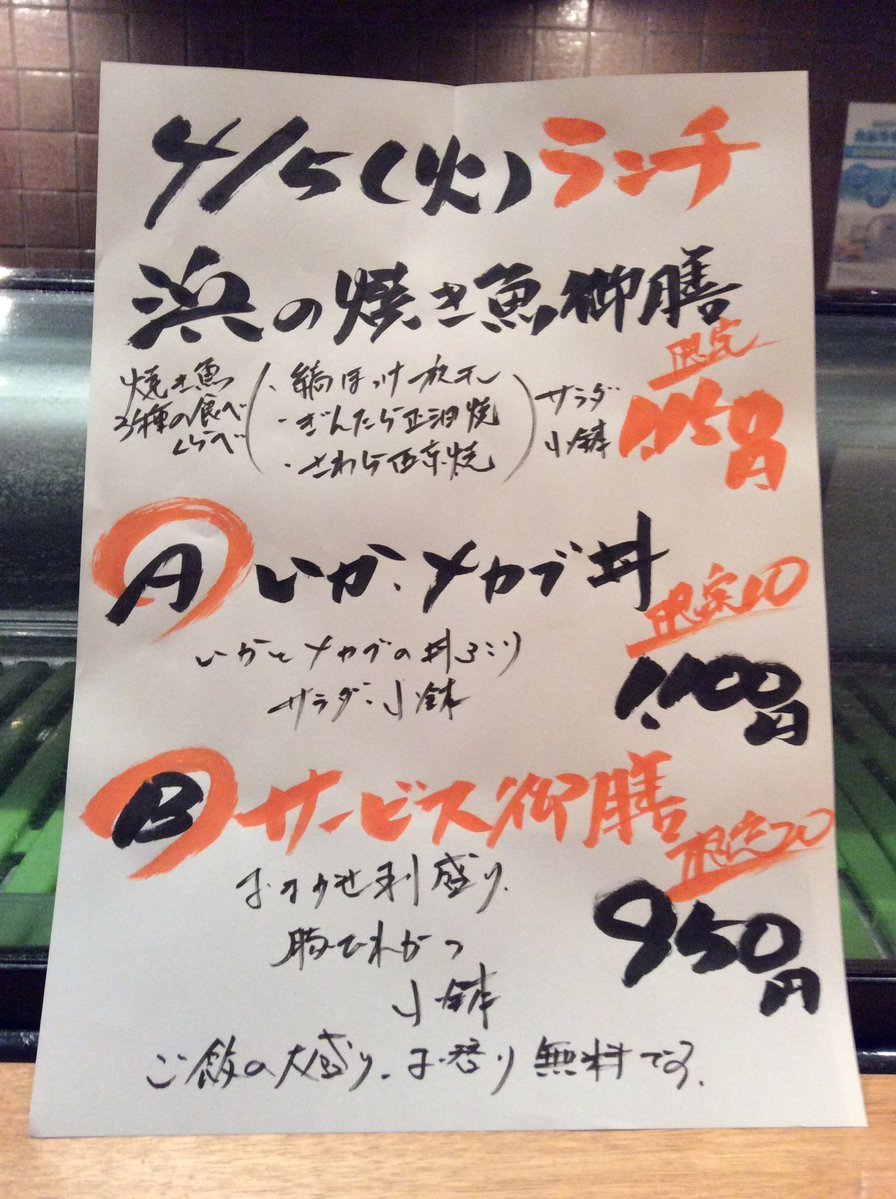 4/5(火)ランチ
浜の焼き魚御膳
限定
焼き魚
3種の食べ
くらべ
・縞ほっけ一夜干
・ぎんだら正油焼
・さわら西京焼
サラダ
小鉢
円
A いか、メカブ丼
限定10
いかとメカブの丼
サラダ、小鉢
1,100円
B サービス御膳
限定20
おまかせ刺盛り、
豚ひれかつ
小鉢
950円
ご飯の大盛り、お替り無料です。